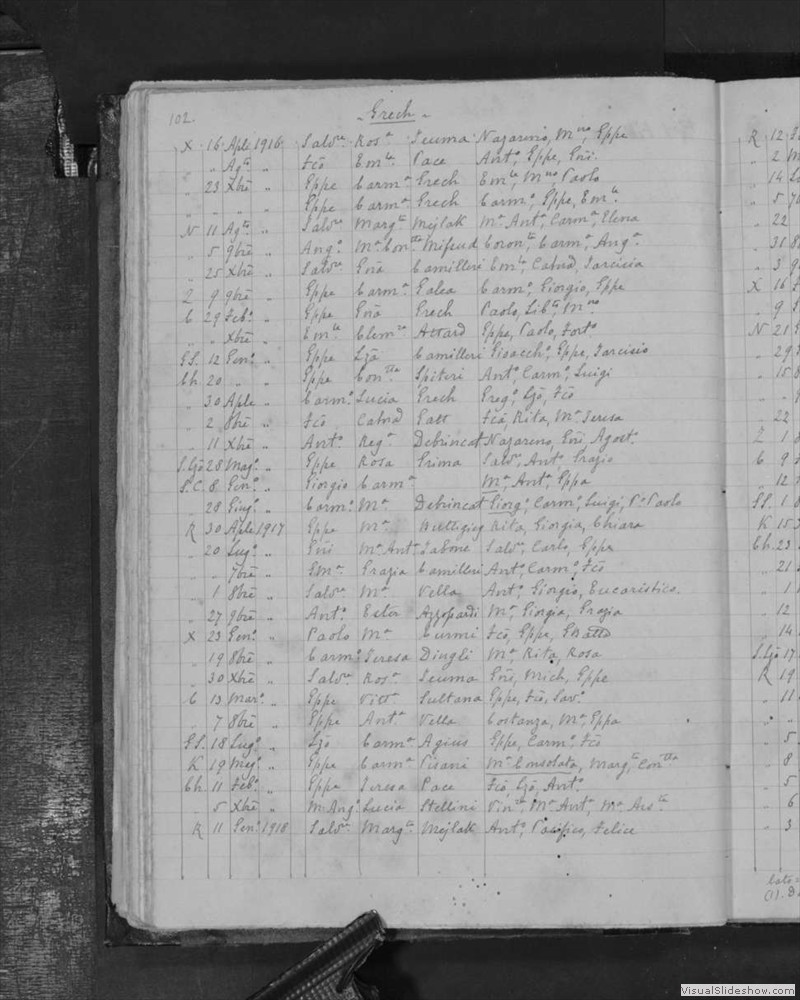 102.
Grech
X 16 Aple 1916 Salvre Rosa Scuma Nazareno, Mno, Eppe
" " Agto " Fco Emla Pace Anto, Eppe, Eñi.
" 23 Xbre " Eppe Carma Grech Emla, Mno, Paolo
" " " " Eppe Carma Grech Carmo, Eppe, Emla
N 11 Agto " Salvre Margta Mejlak Ma Anta, Carma, Elena
" 5 9bre " Ango Ma Contta Mifsud Coronta, Carma, Anga
" 25 Xbre " Salvre Eña Camilleri Emla, Catnd, Tarcisia
Z 9 9bre " Eppe Carma Galea Carmo, Giorgio, Eppe
C 29 Febo " Eppe Eña Grech Paolo, Libta, Mno
" " Xbre " Emle Clemza Attard Eppe, Paolo, Forto
GS. 12 Geno " Eppe Lza Camilleri Gioaccho, Eppe, Tarcisio
Ch 20 " " Eppe Contta Spiteri Anto, Carmo, Luigi
" 30 Aple " Carmo Lucia Grech Grego, Lzo, Fco
" 2 8bre " Fco Catnd Gatt Fca, Rita, Ma Teresa
" 11 Xbre " Anto Rega Debrincat Nazareno, Eñi, Agost.
S.Lzo 28 Mago " Eppe Rosa Grima Salvre, Anto, Grazio
S.C. 8 Geno " Giorgio Carma Ma Anta, Eppa
" 28 Giugo " Carmo Ma Debrincat Giorgo, Carmo, Luigi, Po Paolo
K 30 Aple 1917 Eppe Ma Rita, Giorgia, Chiara
" 20 Lugo " Eñi Ma Anta Tabone Salvre, Carlo, Eppe
" " 7bre " Grazia Camilleri Anto, Carmo, Fco
" 1 8bre " Salvre Ma Vella Anto, Giorgio, Eucaristico.
" 27 9bre " Anto Ester Azzopardi Ma, Giorgia, Grazia
X 23 Geno " Paolo Ma Curmi Fco, Eppe,
" 19 8bre " Carmo Teresa Dingli Ma, Rita, Rosa
" 30 Xbre " Salvre Rosa Scuma Eñi, Mich, Eppe
C 13 Maro " Eppe Vitta Sultana Eppe, Fco, Savo
" 7 8bre " Eppe Anta Vella Costanza, Ma, Eppa
GS. 18 Lugo " Lzo Carma Agius Eppe, Carmo, Fco
K 19 Mago " Eppe Carma Pisani Ma Consolata, Margta, Contta
Ch 11 Febo " Eppe Teresa Pace Fco, Lzo, Anto
" 5 Xbre " M. Ango Lucia Stellini Ma Anta,
K 11 Geno 1918 Salvre Margta Mejlak Anto, Pacifico, Felice
R 12
" 2
" 14
" 5
" 22
" 31
" 3
X 16
" 9
N 21
" 29
" 15
" 22
Z 1
C 9
" 12
GS. 1
K 15
Ch. 23
" 21
" 1
" 12
" 14
S.Lzo 17
R 19
" 11
" 5
" 8
" 5
" 6
" 3
VisualSlideshow.com